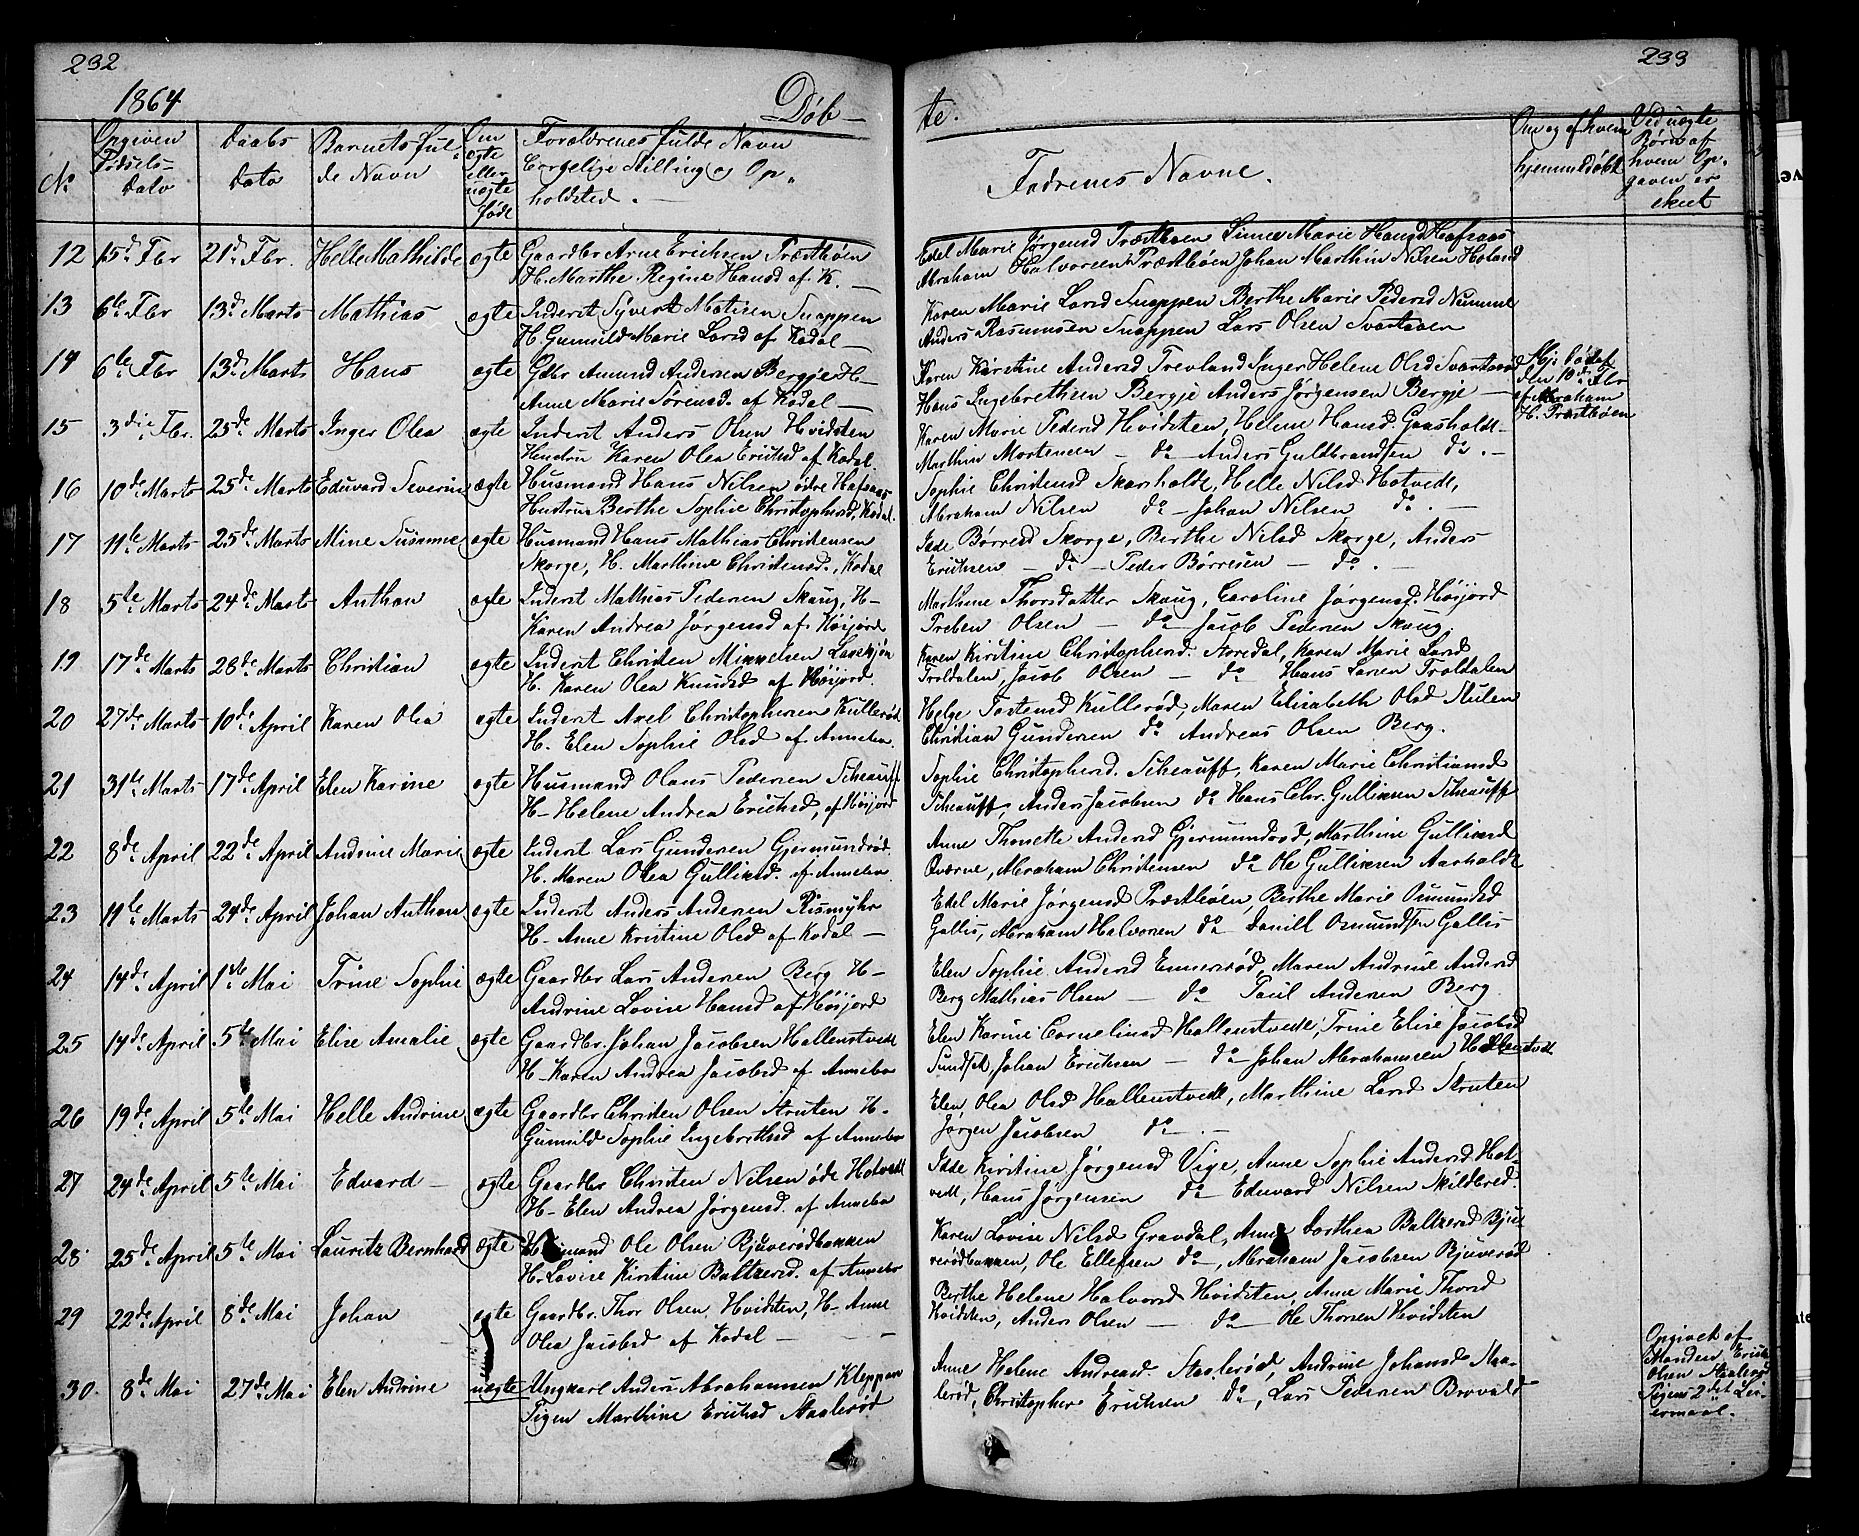 232
1864
Døb-
No
Opgiven Fødsels- Dato
Daabs Dato
Barnets ful- de Navn
Om ægte eller uægte født
Forældrenes fulde Navn Borgelige Stilling og Op- holdsted.
12 15de Fbr 21de Fbr. Helle Mathilde ægte Gaardbr Arne Ericksen Præstbøen
H. Marthe Regine Hansd af K. —
13 6te Fbr 13de Marts Mathias ægte Inderst Syvert Matisen Snappen
H. Gunnild Marie Larsd af Kodal —
14 6te Fbr 13de Marts Hans ægte Gdbr Amund Andersen Bergje H-
Anne Marie Sørensd. af Kodal —
15 3die Fbr. 25de Marts Inger Olea ægte Inderst Anders Olsen Hvidsten
Hustru Karen Olea Ericksd af Kodal.
16 10de Marts 25de Marts Eduvard Severin ægte Husmand Hans Nilsen ødre Hafsaas
Hustru Berthe Sophie Christophersd, Kodal.
17 11te Marts 25de Marts Mine Susanne ægte Husmand Hans Mathias Christensen
Skorge, H. Marthine Christensd., Kodal
18 5te Marts 24de Marts Anthon ægte Inderst Mathias Pedersen Skaug, H-
Karen Andrea Jørgensd af Høijord
19 17de Marts 28de Marts Christian ægte Inderst Christen Mikkelsen Laskjøn
H. Karen Olea Knudsd af Høijord.
20 27de Marts 10de April Karen Olea ægte Inderst Axel Christophersen Kullerød
H. Elen Sophie Olsd af Annebo.
21 31te Marts 17de April Elen Karine ægte Husmand Olaus Pedersen Scheauff
H- Helene Andrea Ericksd, af Høijord
22 8de April 22de April Andrine Marie ægte Inderst Lars Gundersen Gjermundrød.
H. Maren Olea Gulliksd. af Annebo.
23 11te Marts 24de April Johan Anthon ægte Inderst Anders Andersen Rismyhr
H- Anne Kristine Olsd af Kodal —
24 14de April 1ste Mai Trine Sophie ægte Gaardbr Lars Andersen Berg H-
Andrine Lovise Hansd af Høijord
25 14de April 5te Mai Elise Amalie ægte Gaardbr. Johan Jacobsen Hallenstvedt
H- Karen Andrea Jacobsd af Annebo
26 19de April 5te Mai Helle Andrine ægte Gaardbr Christen Olsen Struten H-
Gunnild Sophie Ingebrethsd af Annebo
27 24de April 5te Mai Edvard — ægte Gaardbr Christen Nilsen øde Hotvedt
H- Elen Andrea Jørgensd. af Annebo
28. 25de April 5te Mai Lauritz Bernhard ægte Husmand Ole Olsen Bjuerødbakken
H. Lovise Kirstine Baltzersd. af Annebo
29 22de April 8de Mai Johan ægte Gaardbr. Thor Olsen Hvidsten, H- Anne
Olea Jacobsd af Kodal — — —
30. 8de Mai 27de Mai Elen Andrine uægte Ungkarl Anders Abrahamsen Kleppan
Pigen Marthine Ericksd Staalerød
233
te.
Fadrenes Navne.
Om og af hvem hjemmedøbt
Ved uægte Børn af hvem Op- gaven er skeet
Edel Marie Jørgensd Præstbøen Sinne Marie Hansd Hafsaas
Abraham Halvorsen Præstbøen Johan Marthin Nilsen Holand
Karen Marie Larsd Snappen Berthe Marie Pedersd Numme
Anders Rasmussen Snappen Lars Olsen Svartaaen
Karen Kirstine Andersd Trevland Inger Helene Olsd Svartaaen
Hans Ingebrethsen Bergje Anders Jørgensen Bergje —
Hje. døbt
den 10de Fbr
af Abraham
H. Præstbøen
Karen Marie Pedersd Hvidsten, Helene Hansd. Gaasholdt-
Marthin Mortensen — do — Anders Guldbrandsen do. —
Sophie Christensd Skarsholdt, Helle Nilsd Hotvedt,
Abraham Nilsen do — Johan Nilsen do. —
Idde Børresd Skorge, Berthe Nilsd Skorge, Anders
Ericksen — do — Peder Børresen — do. —
Marthine Thorsdatter Skaug, Caroline Jørgensd. Høijord
Preben Olsen — do — Jacob Pedersen Skaug.
Karen Kirstine Christophersd. Storedal, Karen Marie Larsd
Troldalen, Jacob Olsen — do Hans Larsen Troldalen
Helge Tostensd Kullerød, Maren Elisabeth Olsd Stulen
Christian Gundersen do Andreas Olsen Berg.
Sophie Christophersd. Scheauff, Karen Marie Christiansd
Scheauff, Anders Jacobsen do Hans Chr. Gulliksen Scheauff
Anne Thonette Andersd Gjermundrød, Marthine Gulliksd
Qværne, Abraham Christensen do Ole Gulliksen Aarholdt
Edel Marie Jørgensd Præstbøen, Berthe Marie Osmundsd
Gallis, Abraham Halvorsen do Daniel Osmundsen Gallis
Elen Sophie Andersd Ennersrød, Maren Andrine Andersd
Berg Mathias Olsen — do — Paul Andersen Berg.
Elen Karine Corneliusd Hallenstvedt, Trine Elise Jacobsd
Sundset, Johan Ericksen — do — Johan Abrahamsen Hallenstvedt
Elen Olea Olsd Hallenstvedt, Marthine Larsd Struten
Jørgen Jacobsen do. —
Idde Kirstine Jørgensd Vige, Anne Sophie Andersd Hot-
vedt, Hans Jørgensen do — Eduvard Nilsen Skildbred.
Karen Lovise Nilsd Gravdal, Anne Dorthea Baltzersd Bjue
rødbakken, Ole Ellefsen do, Abraham Jacobsen Bjuerød
Berthe Helene Halvorsd Hvidsten, Anne Marie Thorsd
Hvidsten, Anders Olsen — do — Ole Thorsen Hvidsten
Anne Helene Andreasd. Staalerød, Andrine Johansd Staa-
lerød, Christopher Ericksen do, Lars Pedersen Brovald
Opgivet af
Manden Erick
Olsen Staalerød
Pigens 2det Lei-
ermaal.